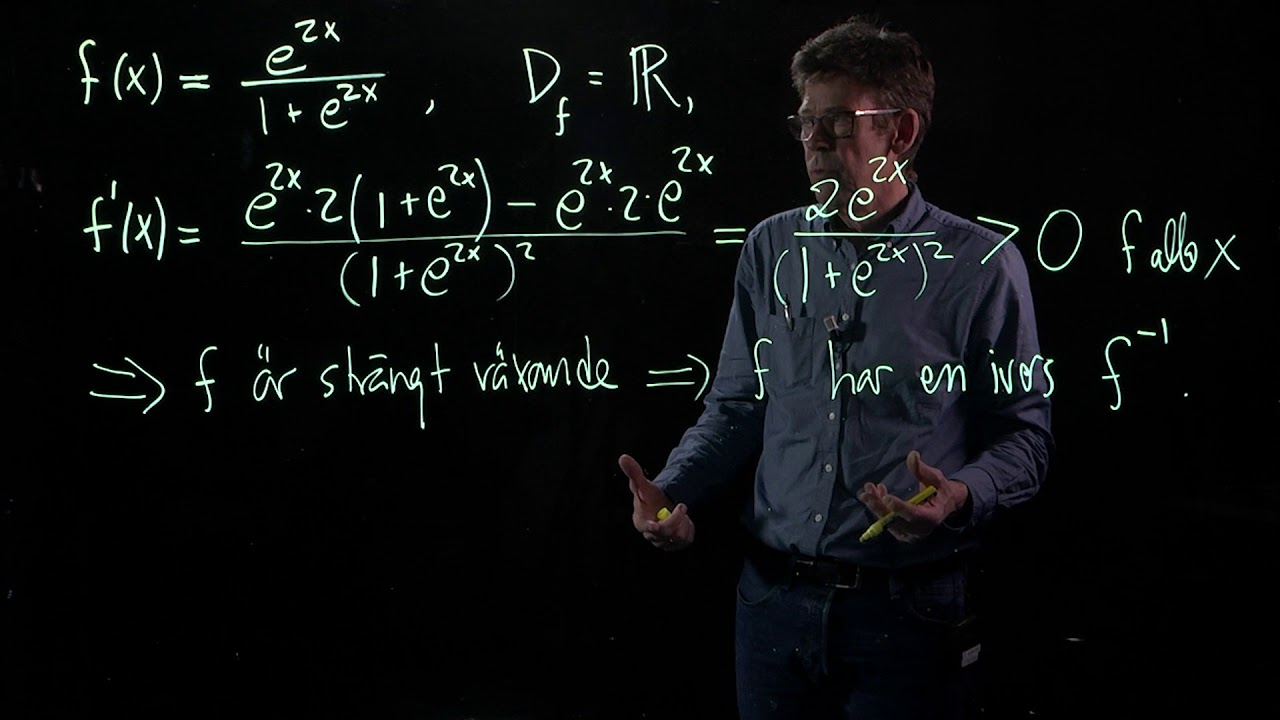 f(x) = e^{2x} / (1 + e^{2x}) , D_f = ℝ,
f'(x) = (e^{2x}·2(1+e^{2x}) − e^{2x}·2·e^{2x}) / (1+e^{2x})^2 = 2e^{2x} / (1+e^{2x})^2 > 0 f alla x
⇒ f är strängt växande ⇒ f har en ivers f^{-1} .